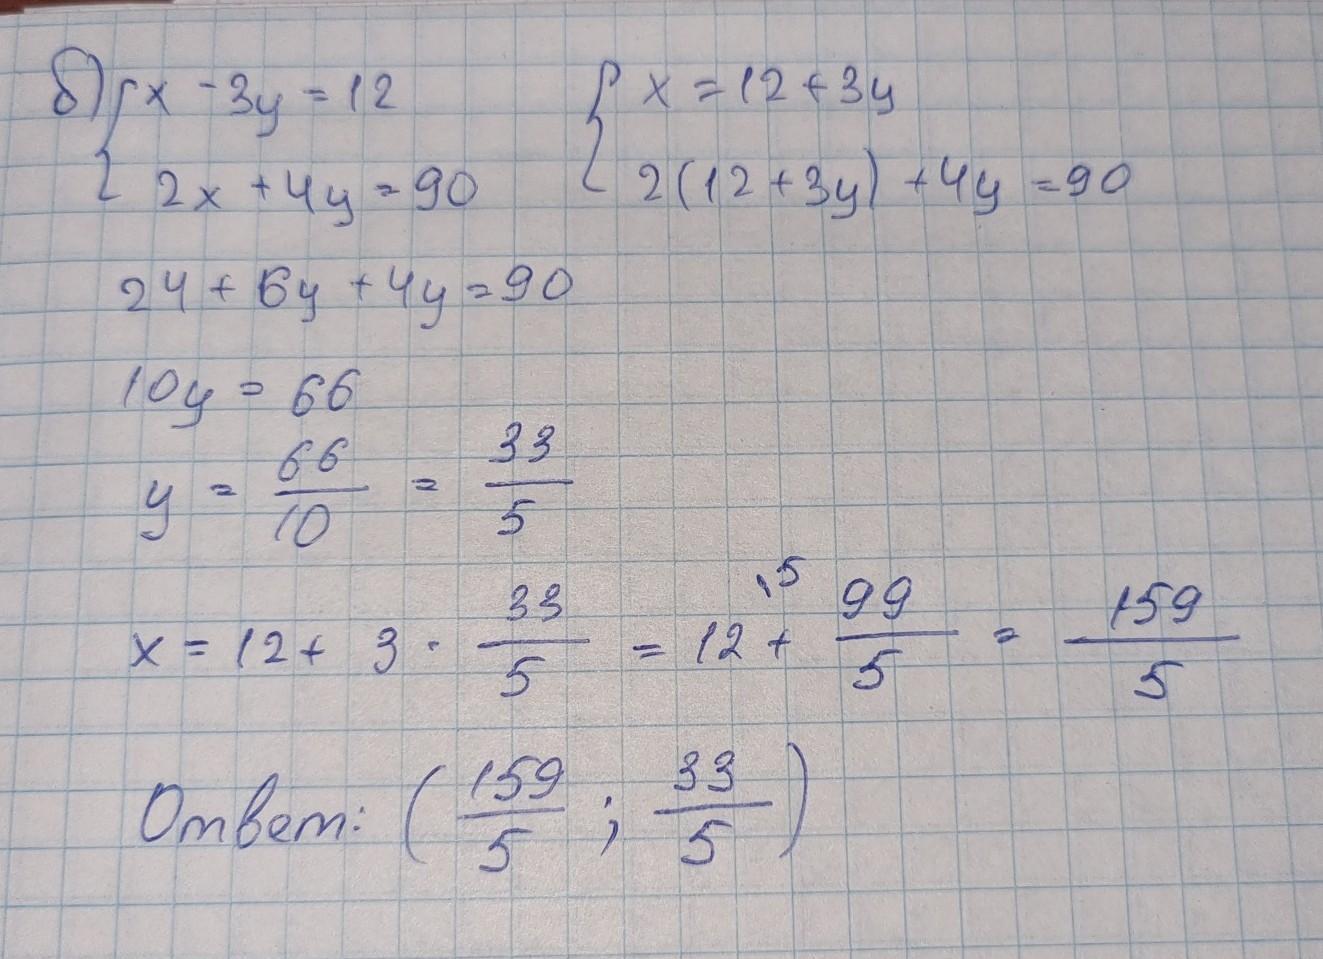 б) { x - 3y = 12 { x = 12 + 3y
2x + 4y = 90 2(12 + 3y) + 4y = 90
24 + 6y + 4y = 90
10y = 66
y = 66/10 = 33/5
x = 12 + 3 · 33/5 = 12 ⁵ + 99/5 = 159/5
Ответ: (159/5 ; 33/5)